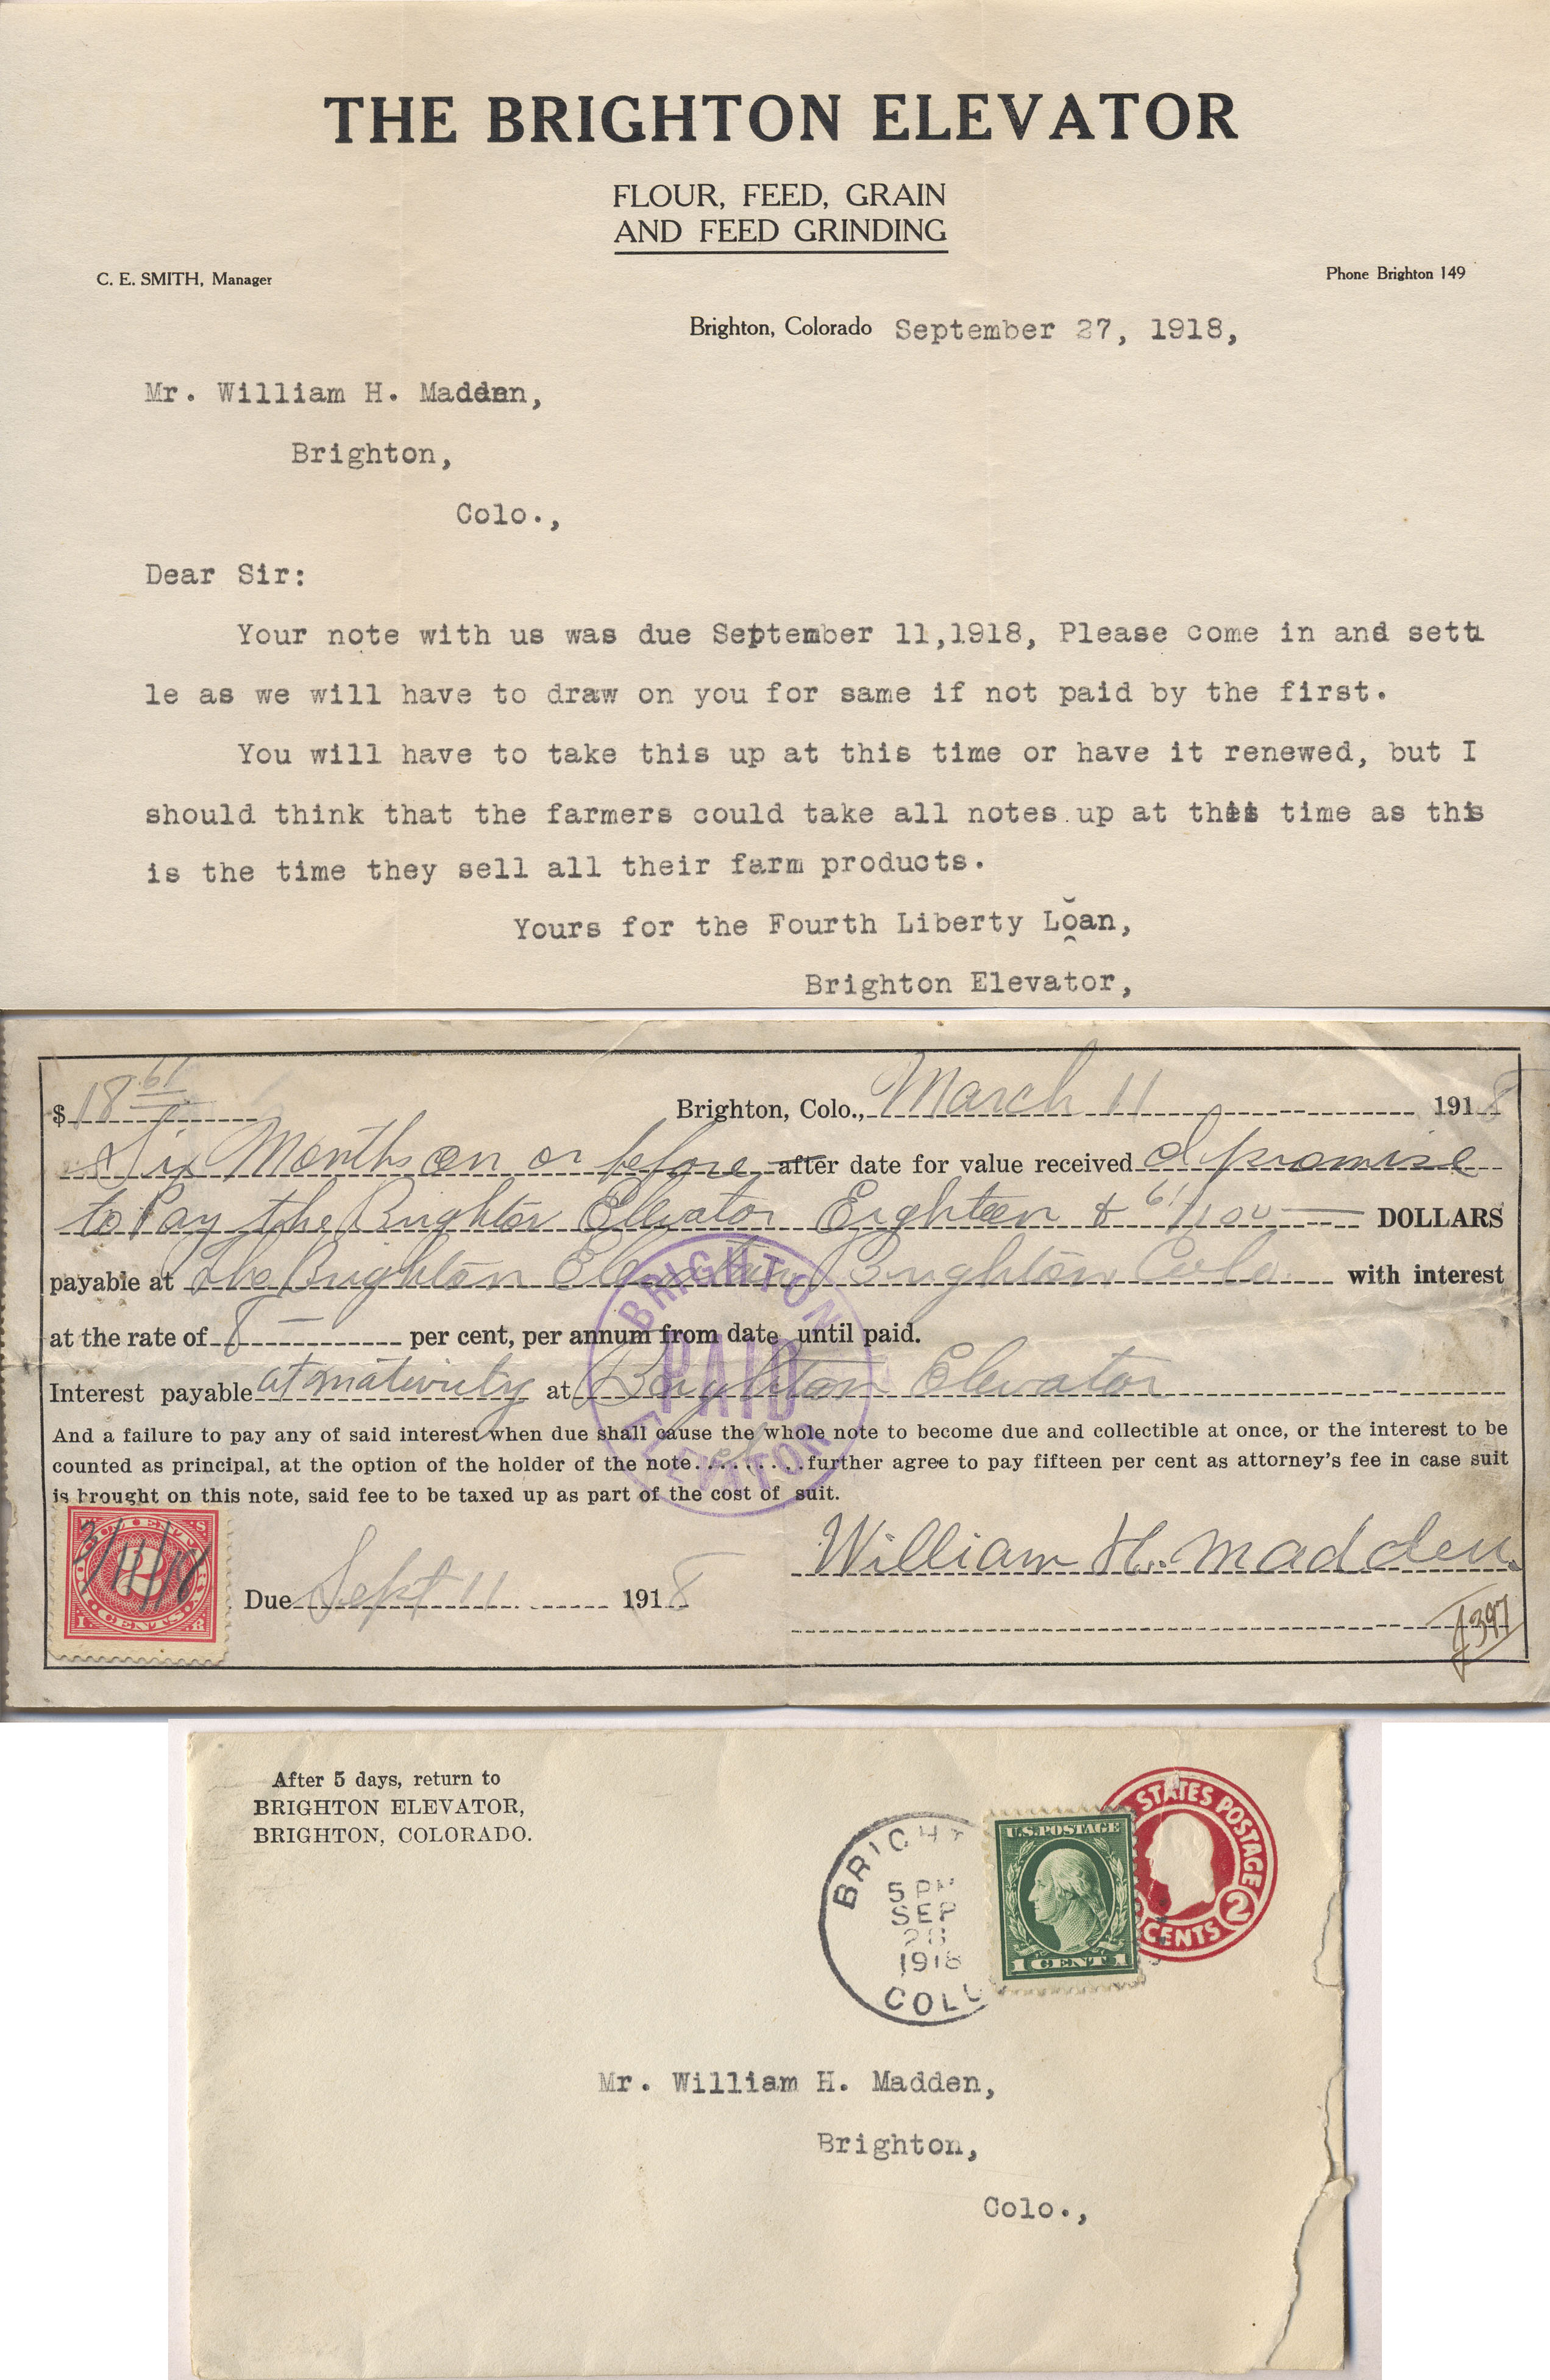 THE BRIGHTON ELEVATOR
FLOUR, FEED, GRAIN
AND FEED GRINDING
C. E. SMITH, Manager
Phone Brighton 149
Brighton, Colorado September 27, 1918,
Mr. William H. Madden,
Brighton,
Colo.,
Dear Sir:
Your note with us was due September 11,1918, Please come in and sett
le as we will have to draw on you for same if not paid by the first.
You will have to take this up at this time or have it renewed, but I
should think that the farmers could take all notes up at this time as this
is the time they sell all their farm products.
Yours for the Fourth Liberty Loan,
Brighton Elevator,
$ 18 61
Brighton, Colo., March 11 1918
Six Months on or before after date for value received I promise
to Pay the Brighton Elevator Eighteen & 61/100 DOLLARS
payable at The Brighton Elevator Brighton Colo with interest
at the rate of 8 per cent, per annum from date until paid.
Interest payable at maturity at Brighton Elevator
And a failure to pay any of said interest when due shall cause the whole note to become due and collectible at once, or the interest to be
counted as principal, at the option of the holder of the note........I further agree to pay fifteen per cent as attorney's fee in case suit
is brought on this note, said fee to be taxed up as part of the cost of suit.
BRIGHTON
PAID
ELEVATOR
3/11/18
2
CENTS
Due Sept 11 1918
William H. Madden
397
After 5 days, return to
BRIGHTON ELEVATOR,
BRIGHTON, COLORADO.
BRIGHT
5 PM
SEP
1918
COLO
U.S. POSTAGE
1 CENT 1
STATES POSTAGE
2
CENTS
Mr. William H. Madden,
Brighton,
Colo.,